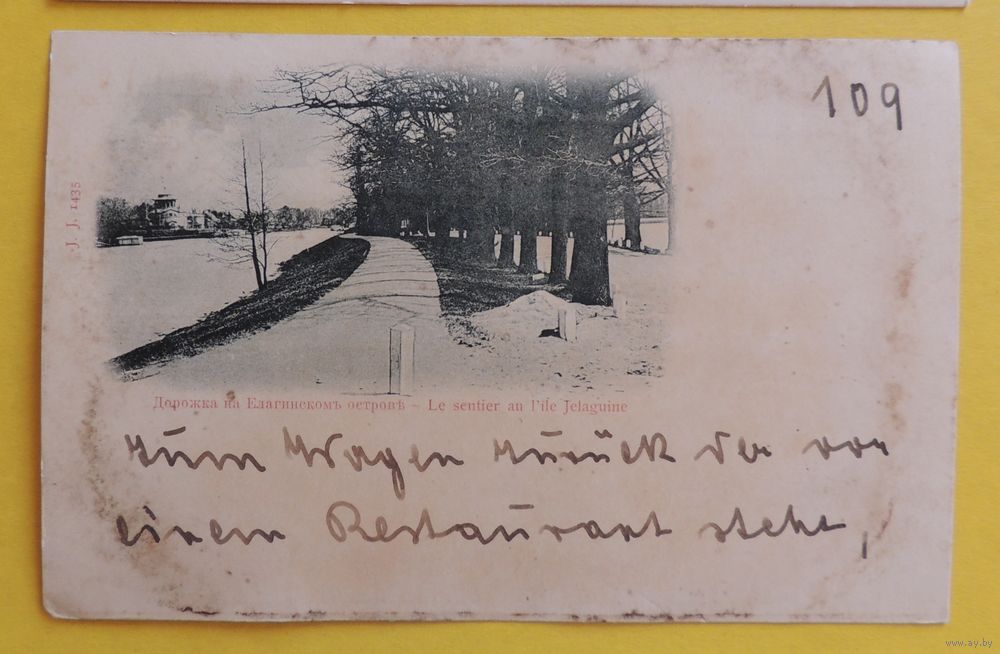 109
J. J. 1435
Дорожка на Елагинскомъ островѣ – Le sentier au l'île Jelaguine
zum Wagen zurück der vor
einem Restaurant steht,
www.ay.by